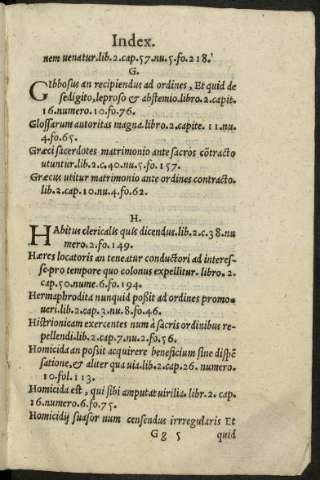 Index.
nem uenatur.lib.2.cap.57.nu.5.fo.218.
G.
GIbbosus an recipiendus ad ordines, Et quid de
sedigito, leproso & abstemio.libro.2.capit.
16.numero.10.fo.76.
Glossarum autoritas magna.libro.2.capite. 11.nu.
4.fo.65.
Græci sacerdotes matrimonio ante sacros cõtracto
utuntur.lib.2.c.40.nu.5.fo.157.
Græcus utitur matrimonio ante ordines contracto.
lib.2.cap.10.nu.4.fo.62.
H.
HAbitus clericalis quis dicendus.lib.2.c.38.nu
mero.2.fo.149.
Hæres locatoris an teneatur conductori ad interes-
se pro tempore quo colonus expellitur. libro.2.
cap.50.nume.6.fo.194.
Hermaphrodita nunquid possit ad ordines promo-
ueri.lib.2.cap.3.nu.8.fo.46.
Histrionicam exercentes num à sacris ordinibus re-
pellendi.lib.2.cap.7.nu.2.fo.56.
Homicida an possit acquirere beneficium sine dispẽ
satione,& aliter qua uia.lib.2.cap.26. numero.
10.fol.113.
Homicida est, qui sibi amputat uirilia. libr.2. cap.
16.numero.6.fo.75.
Homicidij suasor num censendus irrregularis Et
Gg 5 quid